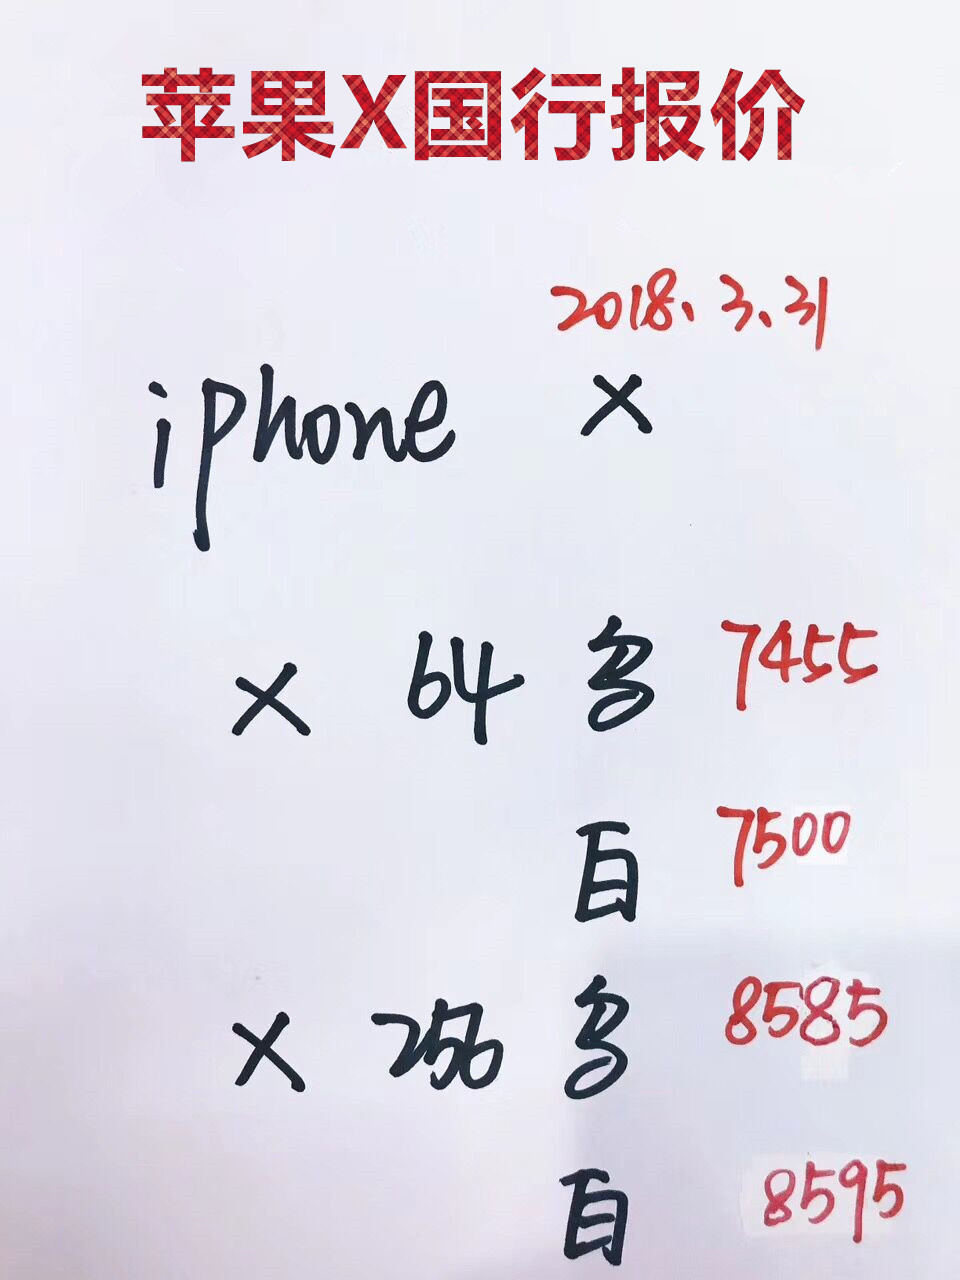 苹果X国行报价
2018.3.31
iphone X
X 64 7455
白 7500
X 256 8585
白 8595